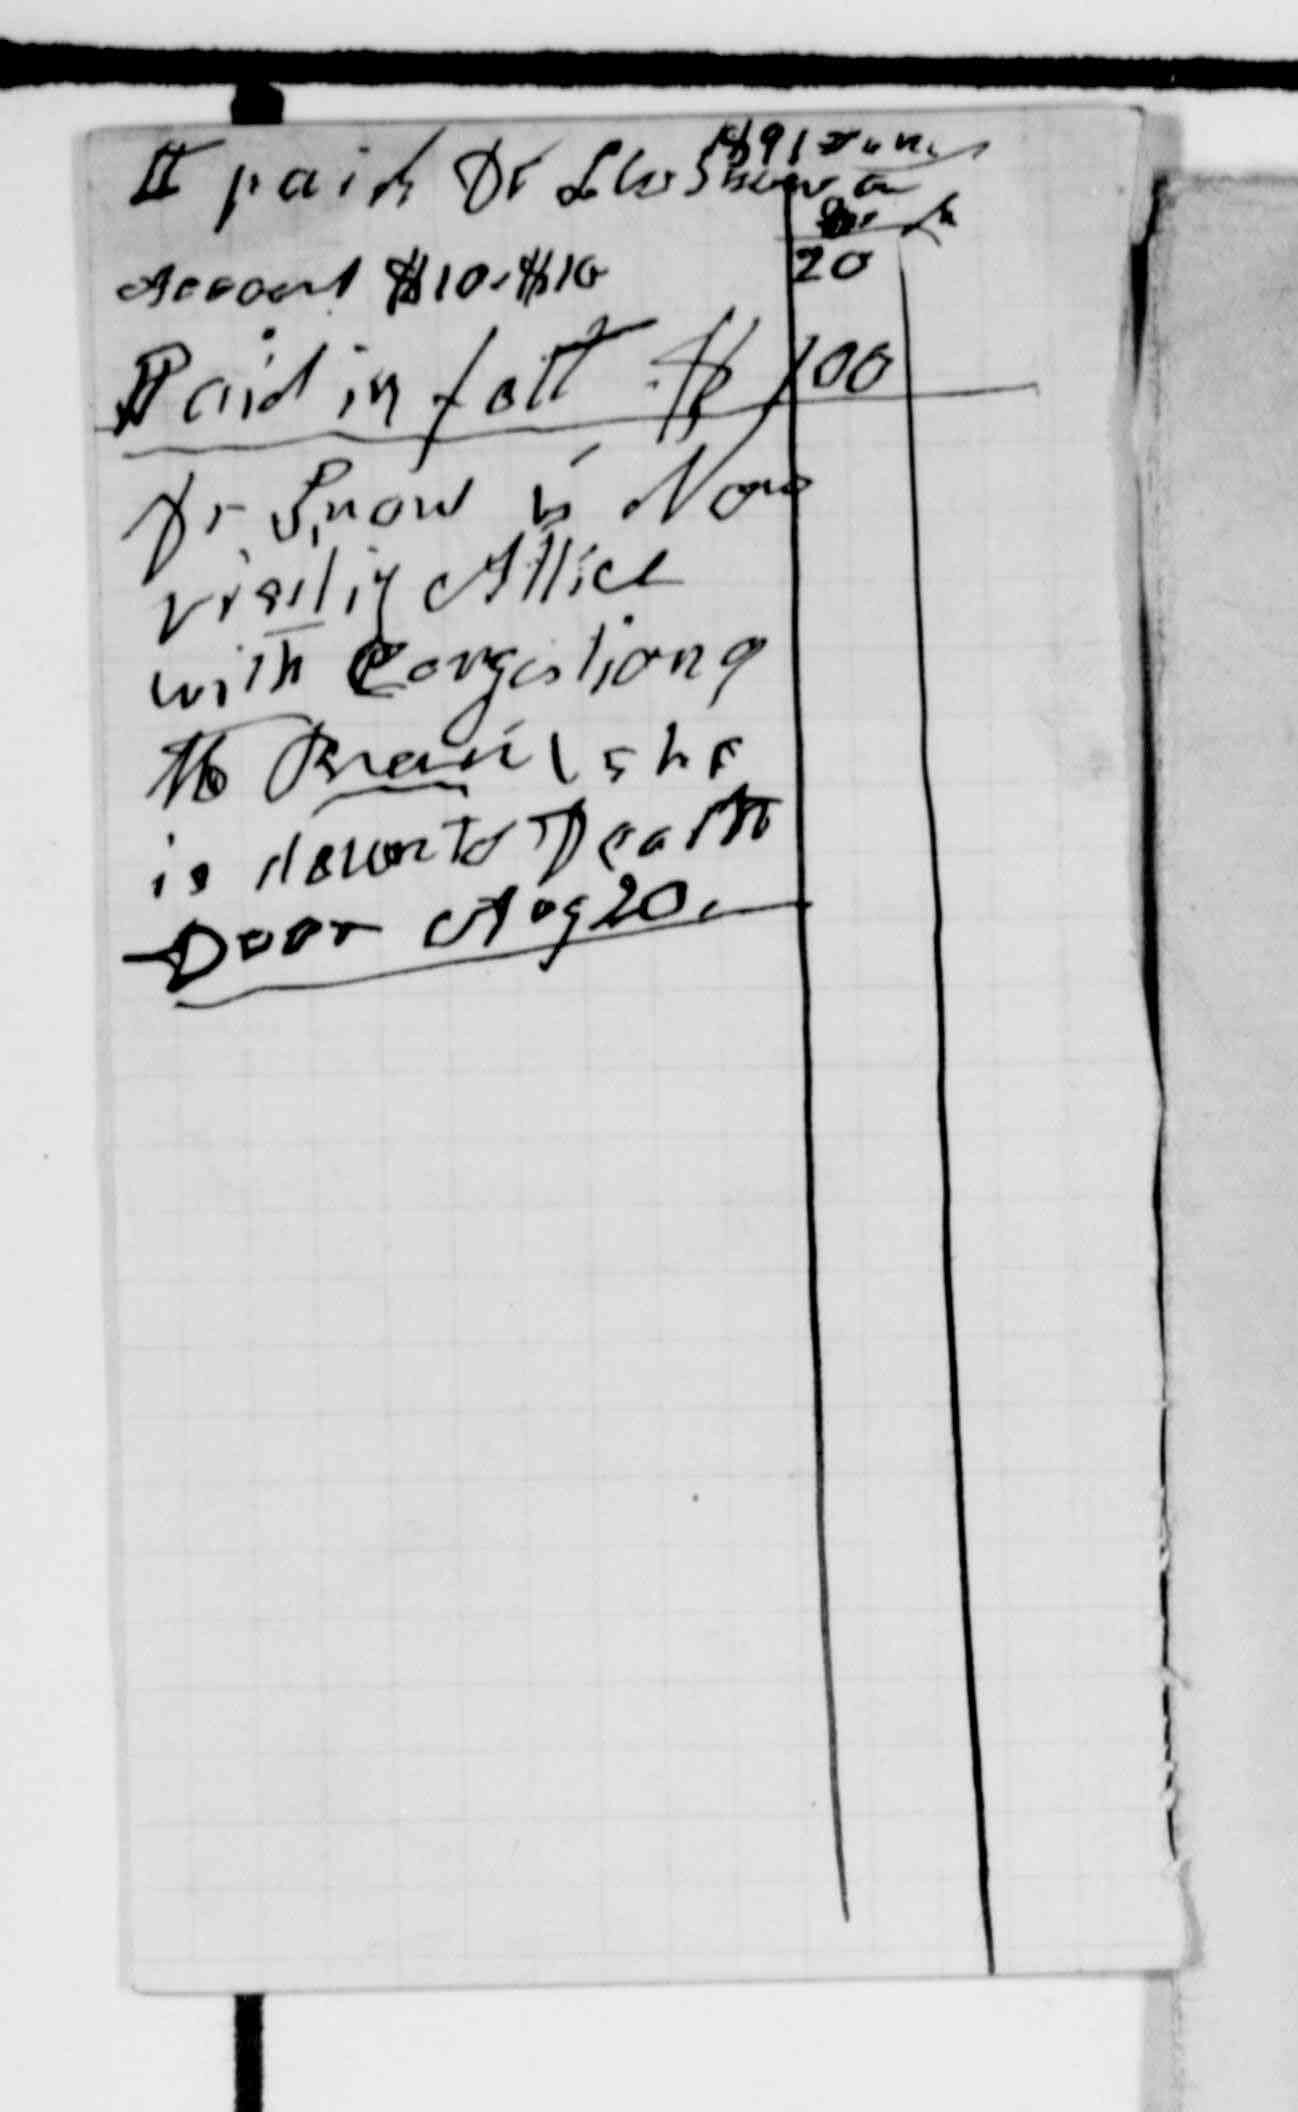 1891 June
I paid Dr Snow on
Account $10.$10 20
Paid in full $100
Dr Snow is Now
visitig Allice
with Congestion of
the Brain she
is down to Death
Door Aug 20.